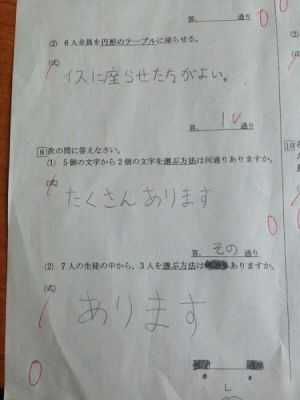 答. 通り
(2) 6人全員を円形のテーブルに座らせる。
(式)
イスに座らせた方がよい。
答. 1 通り
8 次の問に答えなさい。
(1) 5個の文字から2個の文字を選ぶ方法は何通りありますか。
(式)
たくさんあります
答. その 通り
(2) 7人の生徒の中から、3人を選ぶ方法は ありますか。
(式)
あります
10